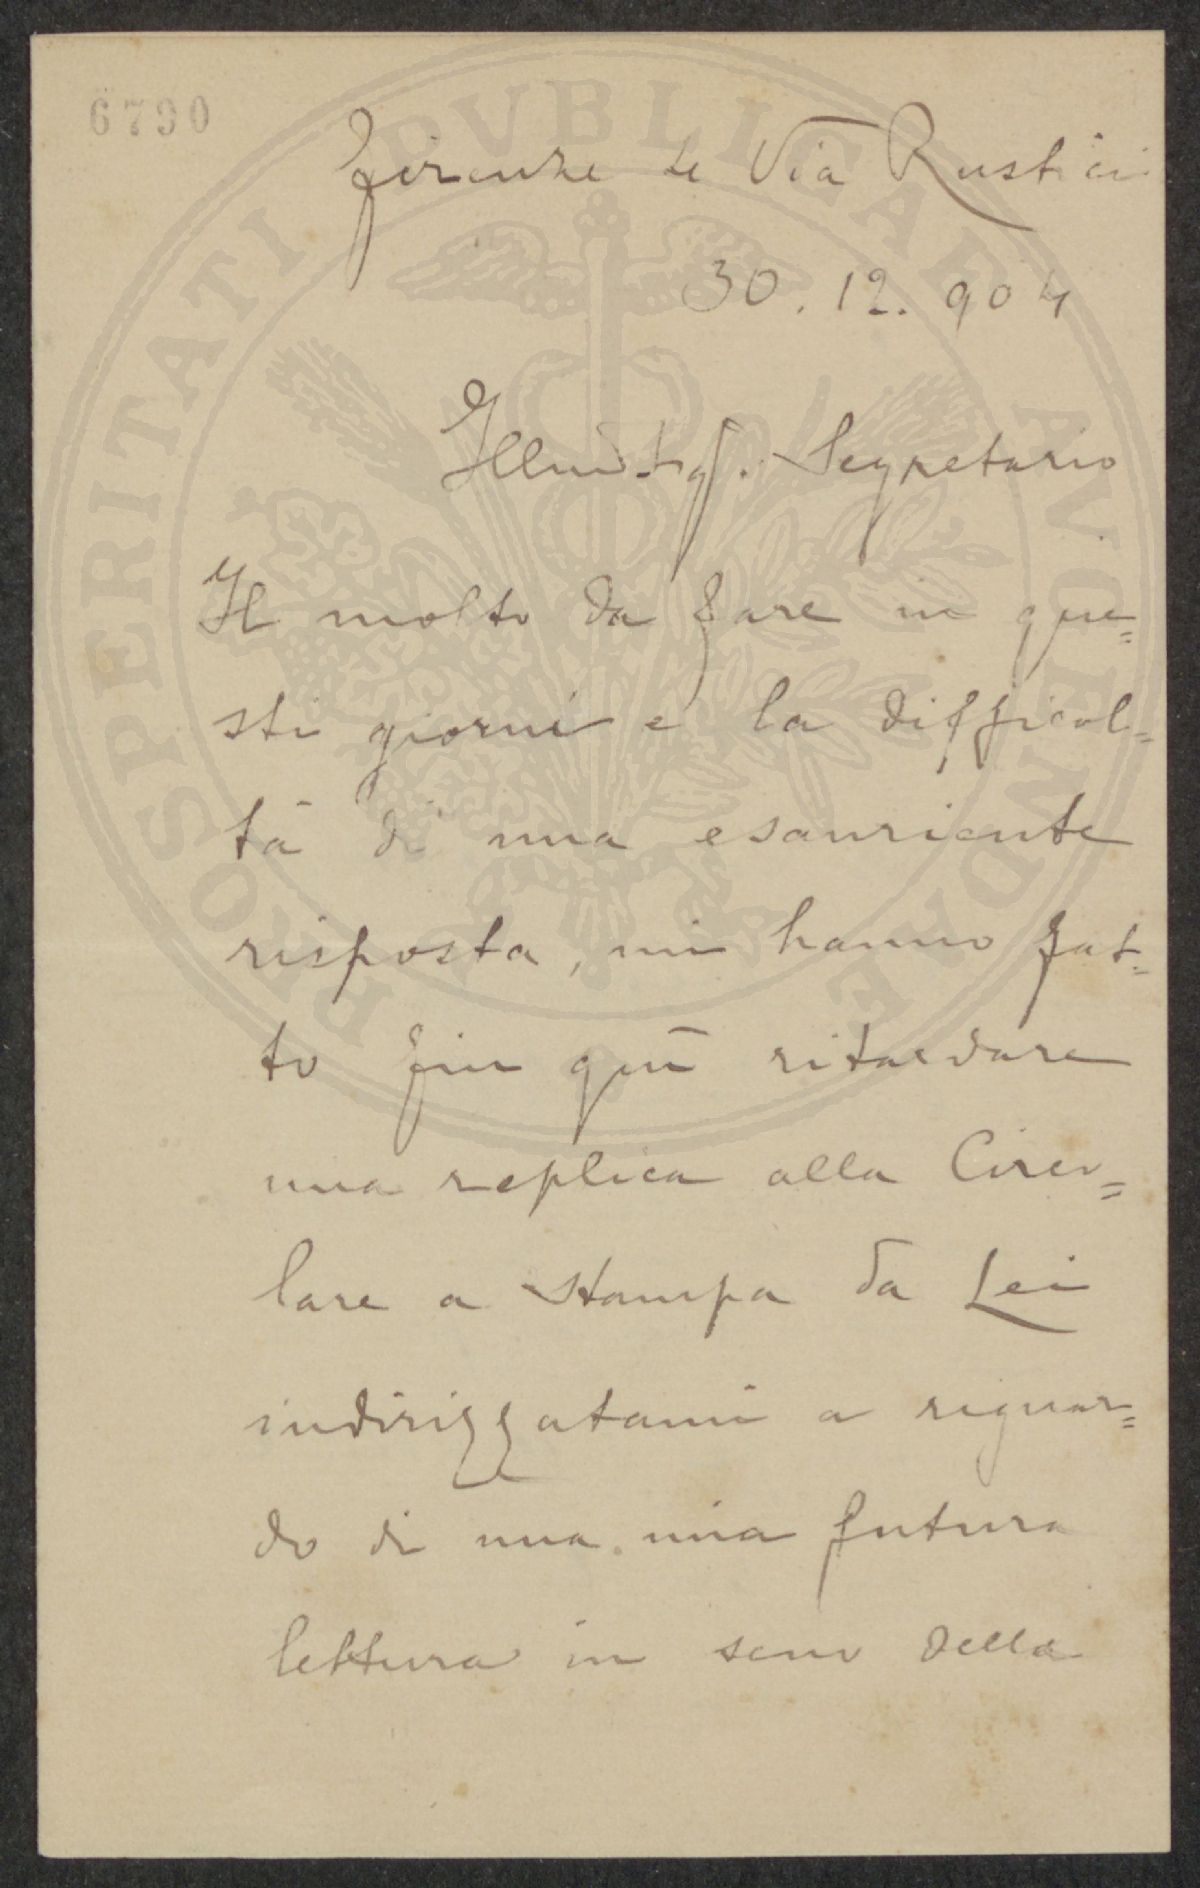 6790
PROSPERITATI PVBLICAE AVGENDAE
Firenze Via Rustici
30.12.904
Segretario
Il molto da fare in que=
sti giorni e la difficol=
tà di una esauriente
risposta, mi hanno fat=
to fin quì ritardare
una replica alla Circo=
lare a stampa da Lei
indirizzatami a riguar=
do di una mia futura
lettura in seno della